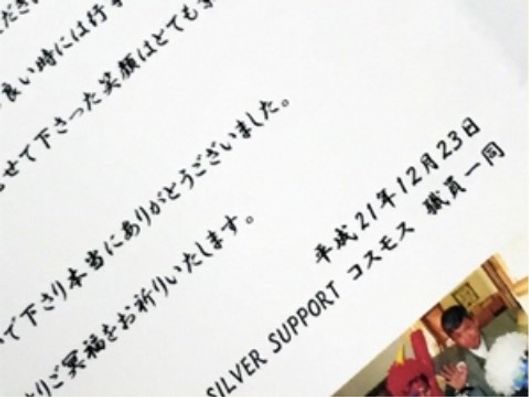 ださい
良い時には行
せて下さった笑顔はとても
て下さり本当にありがとうございました。
りご冥福をお祈りいたします。
平成21年12月23日
SILVER SUPPORT コスモス 職員一同